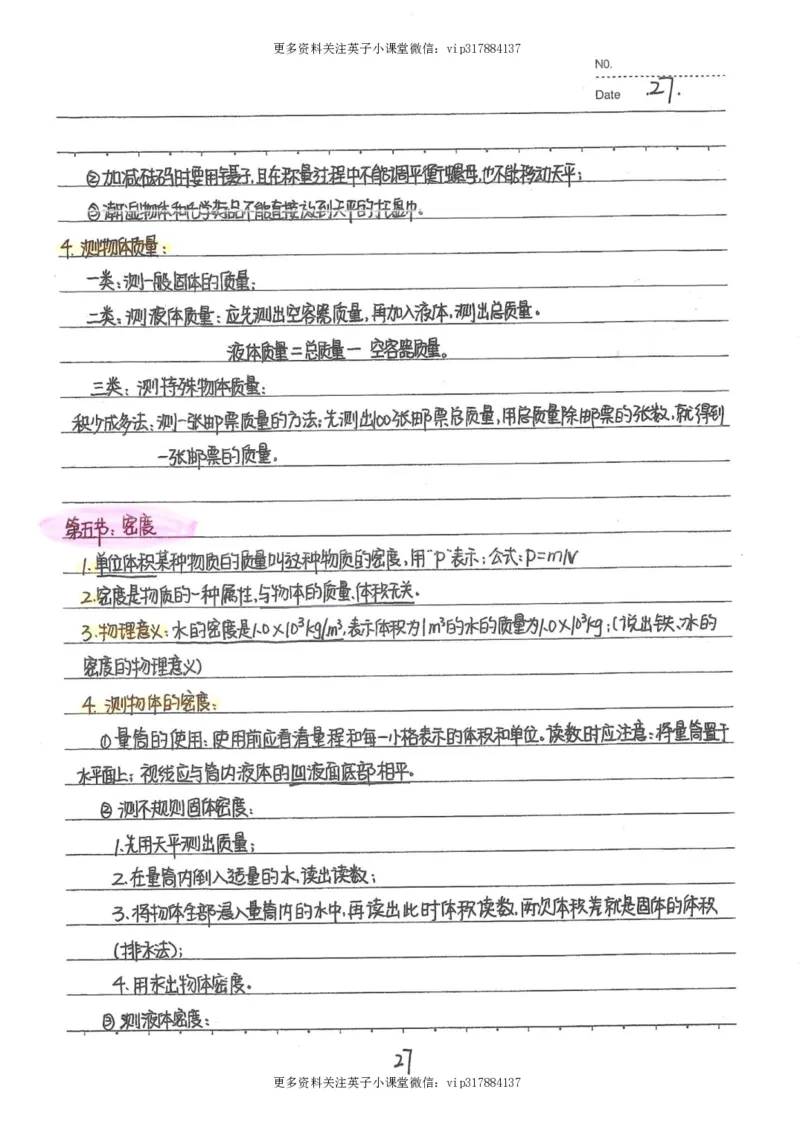 更多资料关注英子小课堂微信：vip317884137
NO.
Date .27.
②加减砝码时要用镊子,且在称量过程中不能调平衡螺母,也不能移动天平;
③潮湿物体和化学药品不能直接放到天平的托盘中。
4. 测物体质量：
一类:测一般固体的质量;
二类:测液体质量:应先测出空容器质量,再加入液体,测出总质量。
液体质量=总质量一 空容器质量。
三类:测特殊物体质量:
积少成多法:测一张邮票质量的方法:先测出100张邮票总质量,用总质量除邮票的张数,就得到
一张邮票的质量。
第五节:密度
1.单位体积某种物质的质量叫这种物质的密度,用"ρ"表示;公式:ρ=m/V
2.密度是物质的一种属性,与物体的质量、体积无关。
3.物理意义:水的密度是1.0×10³kg/m³,表示体积为1m³的水的质量为1.0×10³kg;(说出铁、冰的
密度的物理意义)
4. 测物体的密度:
①量筒的使用:使用前应看清量程和每一小格表示的体积和单位。读数时应注意:将量筒置于
水平面上;视线应与筒内液体的凹液面底部相平。
②测不规则固体密度:
1.先用天平测出质量;
2.在量筒内倒入适量的水,读出读数;
3.将物体全部浸入量筒内的水中,再读出此时体积读数,两次体积差就是固体的体积
(排水法);
4.用求出物体密度。
③测液体密度:
27
更多资料关注英子小课堂微信：vip317884137